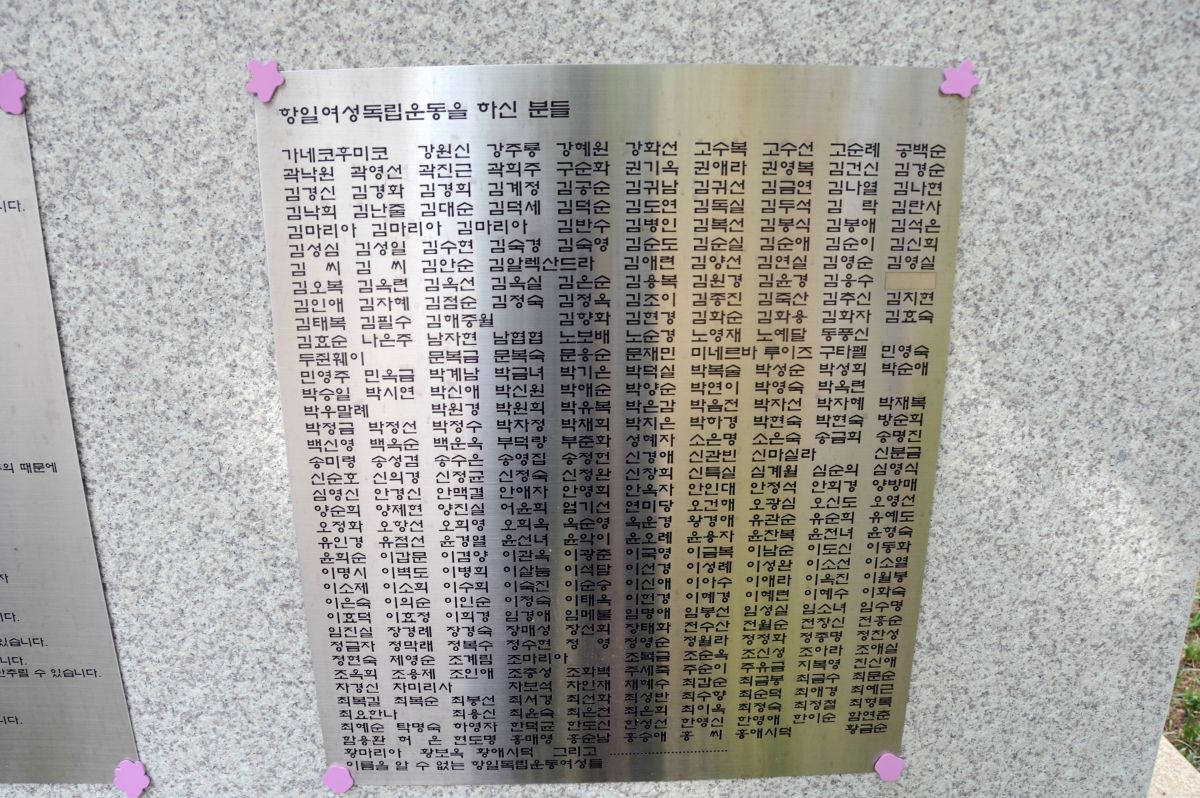 니다.
의 때문에
자
니다.
있습니다.
니다.
수 있습니다
니다.
항일여성독립운동을 하신 분들
가네코후미코 강원신 강주룡 강혜원 강화선 고수복 고수선 고순례 공백순
곽낙원 곽영선 곽진근 곽희주 구순화 권기옥 권애라 권영복 김건신 김경순
김경신 김경화 김경희 김계정 김공순 김귀남 김귀선 김금연 김나열 김나현
김낙희 김난줄 김대순 김덕세 김덕순 김도연 김독실 김두석 김 락 김란사
김마리아 김마리아 김마리아 김반수 김병인 김복선 김봉식 김봉애 김석은
김성심 김성일 김수현 김숙경 김숙영 김순도 김순실 김순애 김순이 김신희
김 씨 김 씨 김안순 김알렉산드라 김애련 김양선 김연실 김영순 김영실
김오복 김옥련 김옥선 김옥실 김온순 김용복 김원경 김윤경 김응수
김인애 김자혜 김점순 김정숙 김정옥 김조이 김종진 김죽산 김추신 김지현
김태복 김필수 김해중월 김향화 김현경 김화순 김화용 김화자 김효숙
김효순 나은주 남자현 남협협 노보배 노순경 노영재 노예달 동풍신
두쥔훼이 문복금 문복숙 문응순 문재민 미네르바 루이즈 구타펠 민영숙
민영주 민옥금 박계남 박금녀 박기은 박덕실 박복술 박성순 박성희 박순애
박승일 박시연 박신애 박신원 박애순 박양순 박연이 박영숙 박옥련
박우말례 박원경 박원희 박유복 박은감 박음전 박자선 박자혜 박재복
박정금 박정선 박정수 박차정 박채희 박치은 박하경 박현숙 박현숙 방순희
백신영 백옥순 백운옥 부덕량 부춘화 성혜자 소은명 소은숙 송금희 송명진
송미령 송성겸 송수은 송영집 송정헌 신경애 신관빈 신마실라 신분금
신순호 신의경 신정균 신정숙 신정완 신창희 신특실 심계월 심순의 심영식
심영신 안경신 안맥결 안애자 안영희 안옥자 안인대 안정석 안희경 양방매
양순희 양제현 양진실 어윤희 엄기선 연미당 오건해 오광심 오신도 오영선
오정화 오항선 오희영 오희옥 옥순영 옥운경 왕경애 유관순 유순희 유예도
유인경 유점선 윤경열 윤선녀 윤악이 윤오례 윤용자 윤찬복 윤천녀 윤형숙
윤희순 이갑문 이겸양 이관옥 이광춘 이국영 이금복 이남순 이도신 이동화
이명시 이벽도 이병희 이살눔 이석담 이선경 이성례 이성완 이소선 이소열
이소제 이소희 이수희 이숙진 이순승 이신애 이아수 이애라 이옥진 이월봉
이은숙 이의순 이인순 이정숙 이태옥 이헌경 이혜경 이혜련 이혜수 이화숙
이효덕 이효정 이희경 임경애 임메불 임명애 임봉선 임성실 임소녀 임수명
임진실 장경례 장경숙 장매성 장선희 장태화 전수산 전월순 전창신 전흥순
정금자 정막래 정복수 정수현 정 영 정영순 정월라 정정화 정종명 정찬성
정현숙 제영순 조계림 조마리아 조복금 조순옥 조신성 조아라 조애실
조옥희 조용제 조인애 조충성 조화벽 주세죽 주순이 주유금 지복영 진신애
차경신 차미리사 차보석 차인재 채혜수 최갑순 최금봉 최금수 최문순
최복길 최복순 최봉선 최서경 최선화 최성반 최수향 최순덕 최애경 최예근
최요한나 최용신 최윤숙 최은전 최은희 최이옥 최정숙 최정철 최형록
최혜순 탁명숙 하영자 한덕균 한도신 한성선 한영신 한영애 한이순 함연춘
함용환 허 은 현도명 홍매영 홍순남 홍승애 홍 씨 홍애시덕 황금순
황마리아 황보옥 황애시덕 그리고 ..............................
이름을 알 수 없는 항일독립운동여성들